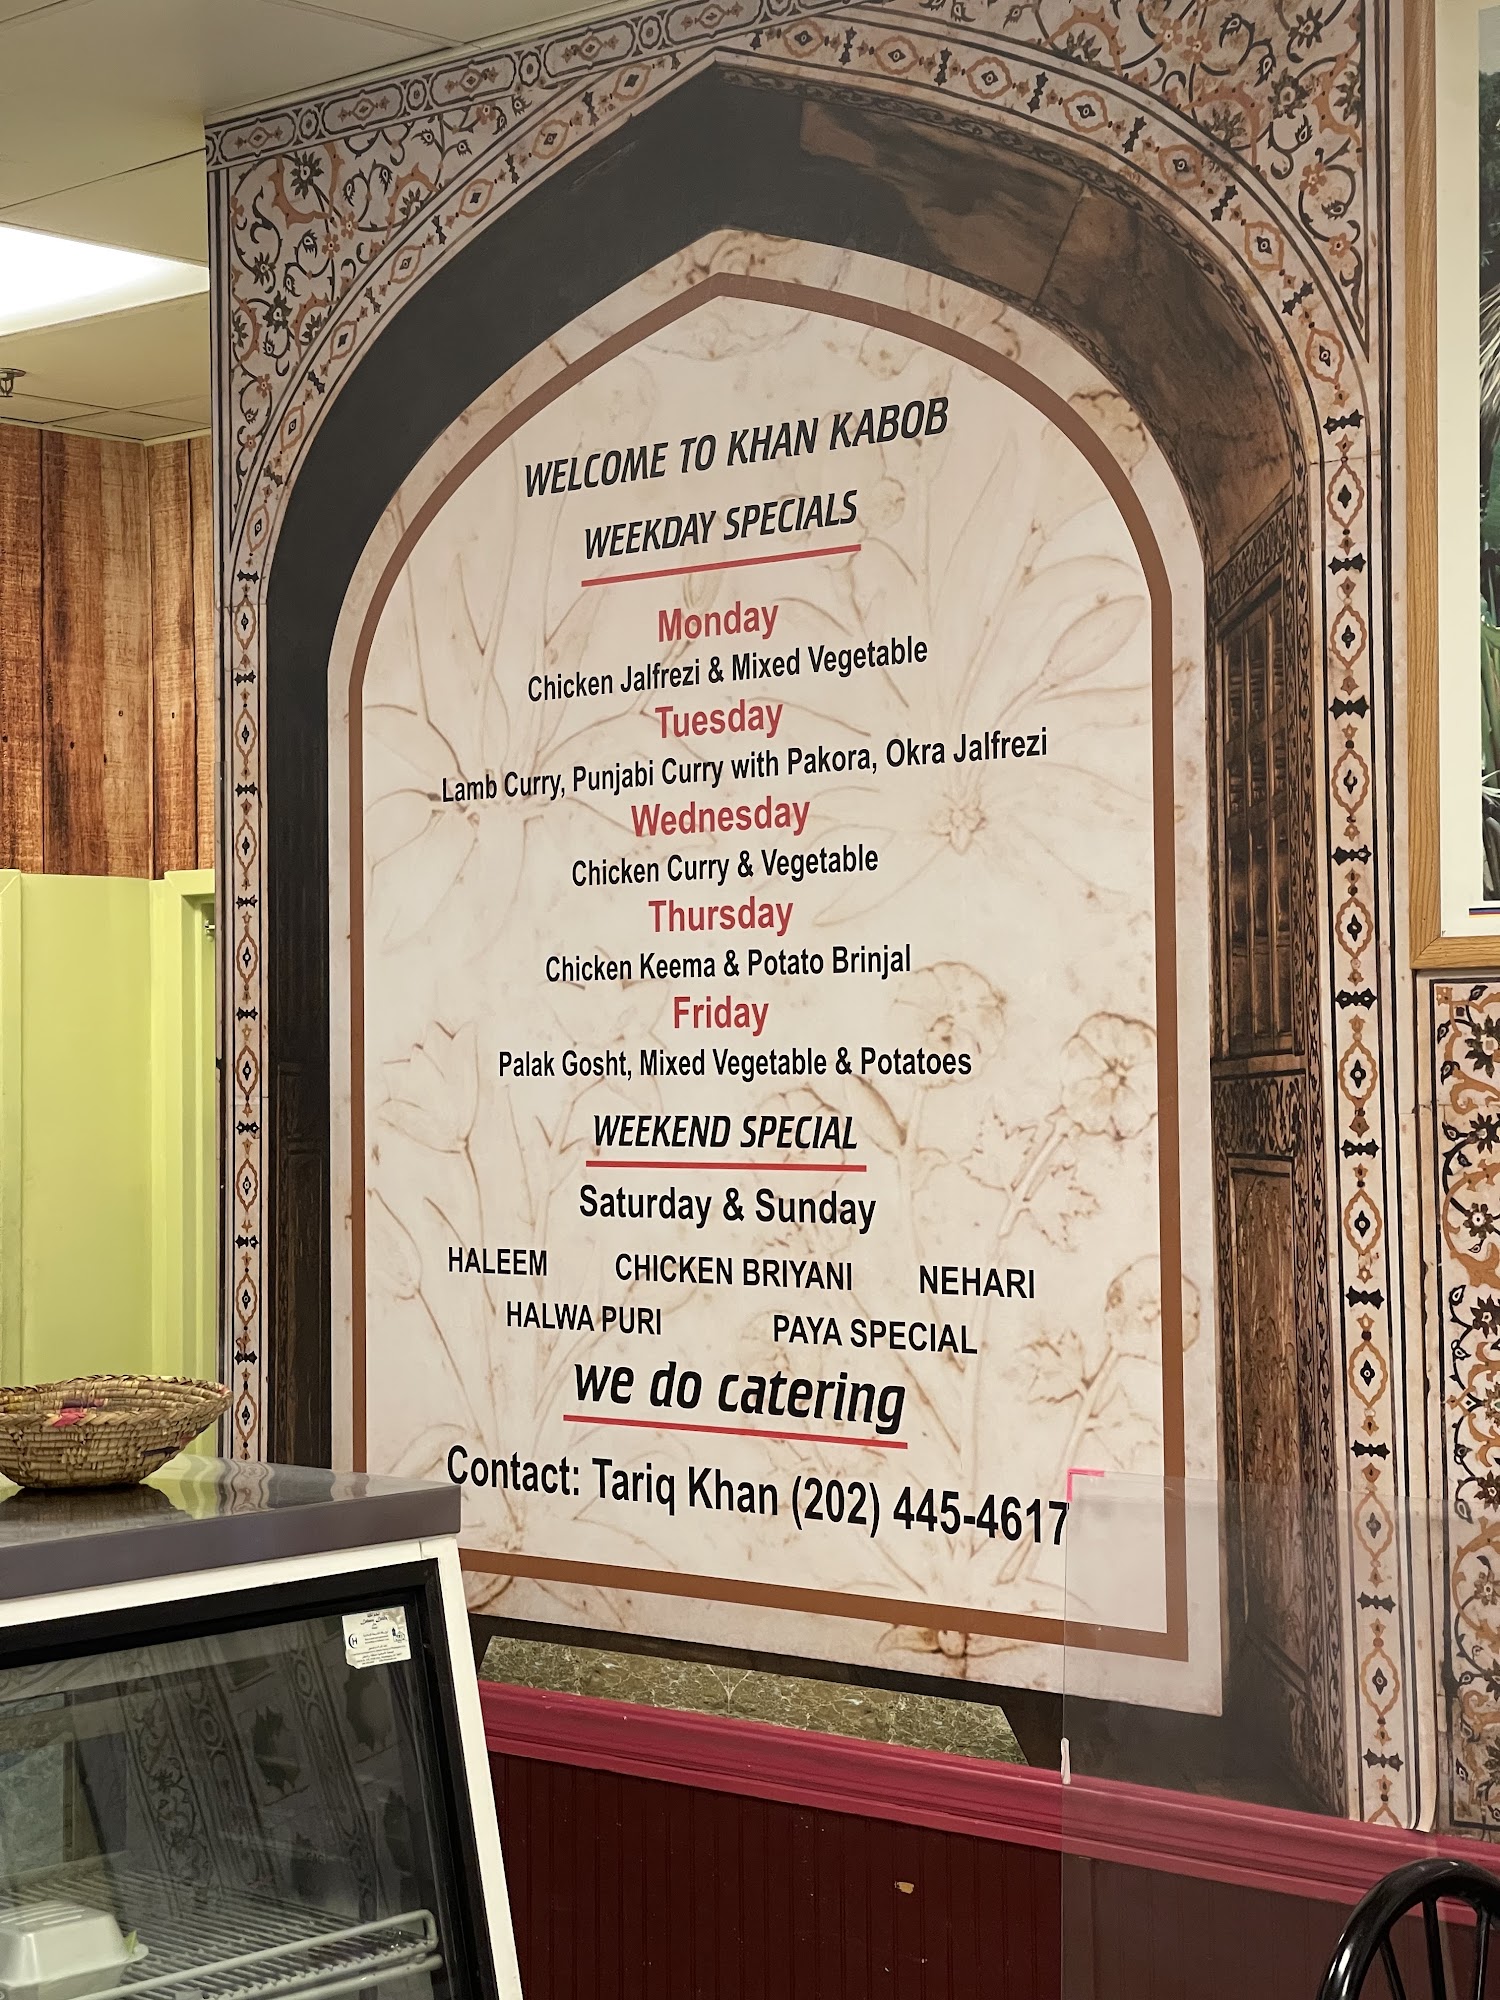 WELCOME TO KHAN KABOB
WEEKDAY SPECIALS
Monday
Chicken Jalfrezi & Mixed Vegetable
Tuesday
Lamb Curry, Punjabi Curry with Pakora, Okra Jalfrezi
Wednesday
Chicken Curry & Vegetable
Thursday
Chicken Keema & Potato Brinjal
Friday
Palak Gosht, Mixed Vegetable & Potatoes
WEEKEND SPECIAL
Saturday & Sunday
HALEEM CHICKEN BRIYANI NEHARI
HALWA PURI PAYA SPECIAL
we do catering
Contact: Tariq Khan (202) 445-4617